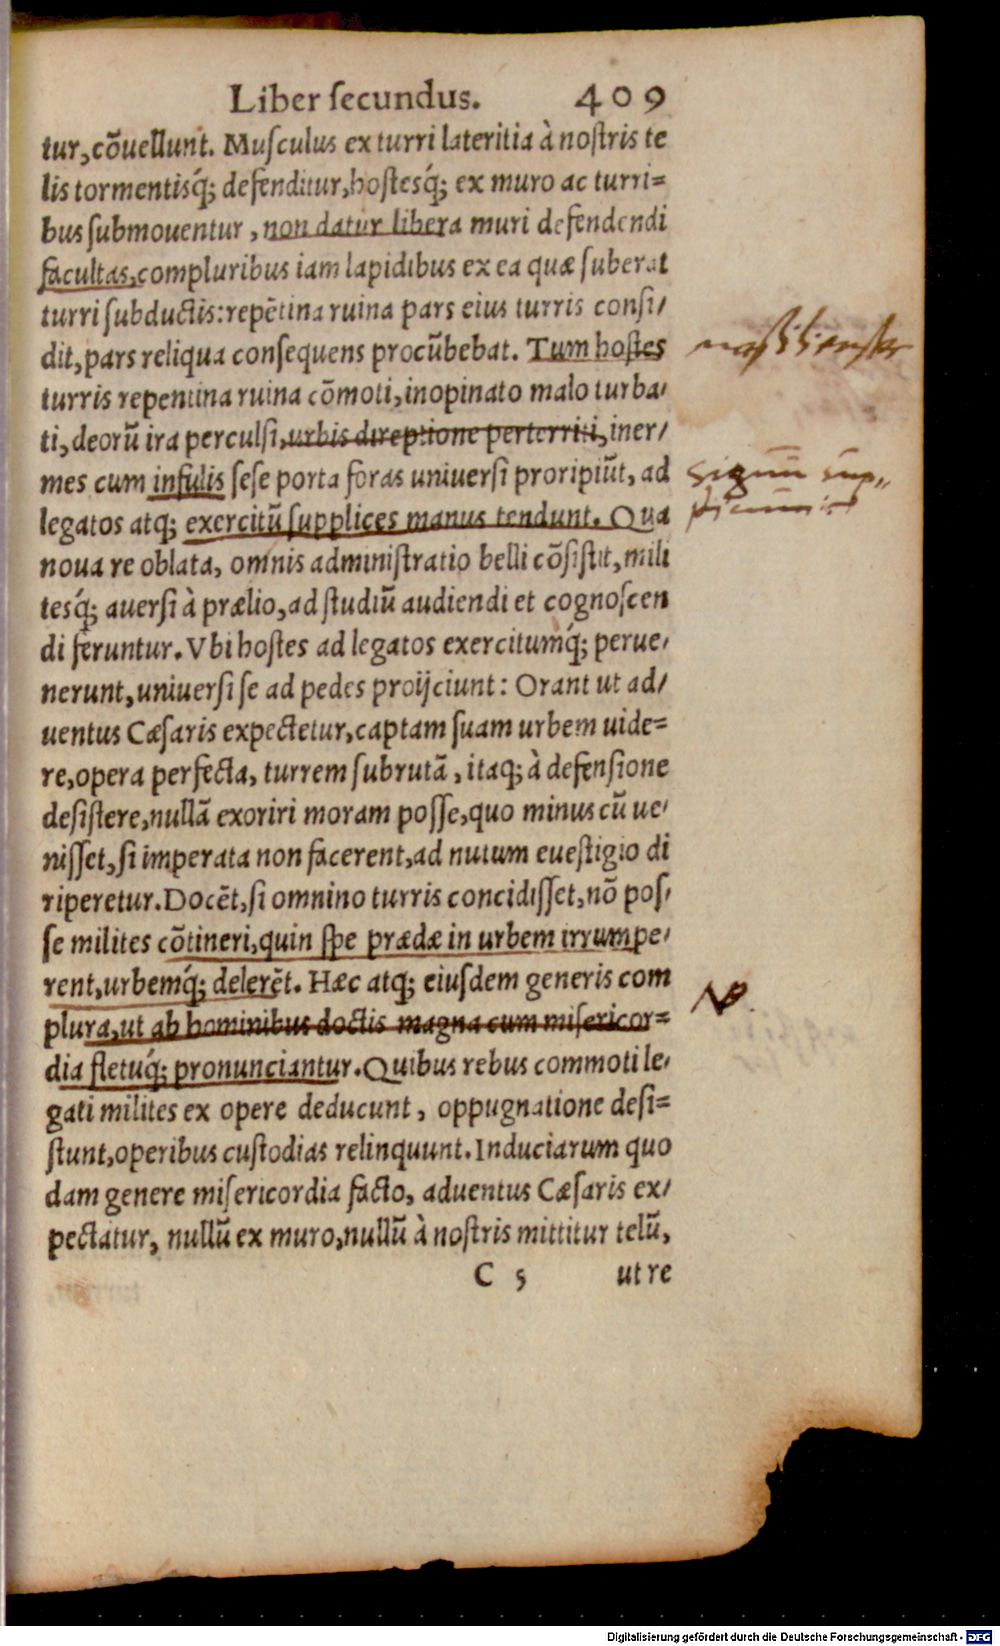 Liber ſecundus. 409
tur, cõuellunt. Muſculus ex turri lateritia à noſtris te
lis tormentisq́; defenditur, hoſtesq́; ex muro ac turri=
bus ſubmouentur, non datur libera muri defendendi
facultas, compluribus iam lapidibus ex ea quæ ſuberat
turri ſubductis: repẽtina ruina pars eius turris conſi/
dit, pars reliqua conſequens procũbebat. Tum hoſtes
turris repentina ruina cõmoti, inopinato malo turba/
ti, deorũ ira perculſi, urbis direptione perterriti, iner/
mes cum infulis ſeſe porta foras uniuerſi proripiũt, ad
legatos atq; exercitũ ſupplices manus tendunt. Qua
noua re oblata, omnis adminiſtratio belli cõſiſtit, mili
tesq́; auerſi à prælio, ad ſtudiũ audiendi et cognoſcen
di feruntur. Vbi hoſtes ad legatos exercitumq́; perue/
nerunt, uniuerſi ſe ad pedes proijciunt: Orant ut ad/
uentus Cæſaris expectetur, captam ſuam urbem uide=
re, opera perfecta, turrem ſubrutã, itaq; à defenſione
deſiſtere, nullã exoriri moram poſſe, quo minus cũ ue/
niſſet, ſi imperata non facerent, ad nutum eueſtigio di
riperetur. Docẽt, ſi omnino turris concidiſſet, nõ poſ/
ſe milites cõtineri, quin ſpe prædæ in urbem irrumpe/
rent, urbemq́; delerẽt. Hæc atq; eiuſdem generis com
plura, ut ab hominibus doctis magna cum miſericor=
dia fletuq́; pronunciantur. Quibus rebus commoti le/
gati milites ex opere deducunt, oppugnatione deſi=
ſtunt, operibus cuſtodias relinquunt. Induciarum quo
dam genere miſericordia facto, aduentus Cæſaris ex/
pectatur, nullũ ex muro, nullũ à noſtris mittitur telũ,
C 5 ut re
Digitalisierung gefördert durch die Deutsche Forschungsgemeinschaft - DFG